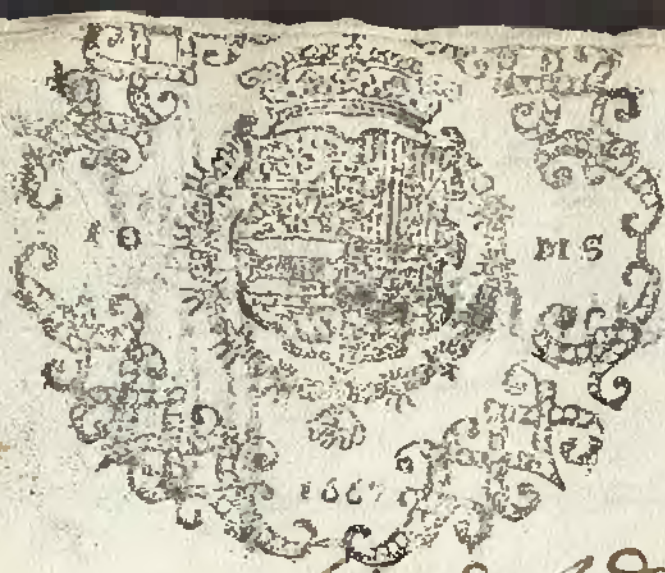 10 MS
1667